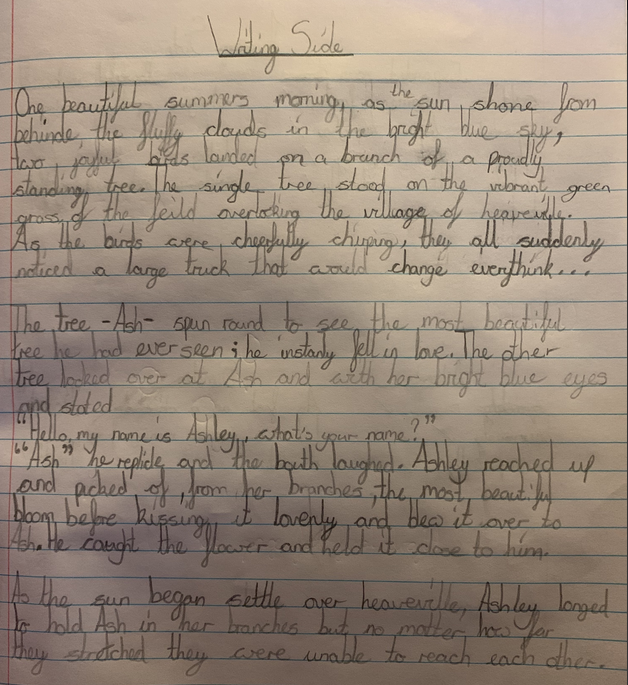 Writing Side
One beautiful summers morning, as the sun shone from
behinde the fluffy clouds in the bright blue sky,
two joyful birds landed on a branch of a proudly
standing tree. The single tree stood on the vibrant green
grass of the feild overlooking the village of heaveville.
As the birds were cheerfully chirping, they all suddenly
noticed a large truck that would change everythink...
The tree -Ash- spun round to see the most beautiful
tree he had ever seen; he instanly fell in love. The other
tree looked over at Ash and with her bright blue eyes
and stated
"Hello, my name is Ashley, what's your name?"
"Ash" he replide and the bouth laughed. Ashley reached up
and picked of, from her branches, the most beautiful
bloom before kissing it lovenly and blew it over to
Ash. He caught the flower and held it close to him.
As the sun began settle over heaveville, Ashley longed
to hold Ash in her branches but no matter how far
they stretched they were unable to reach each other.